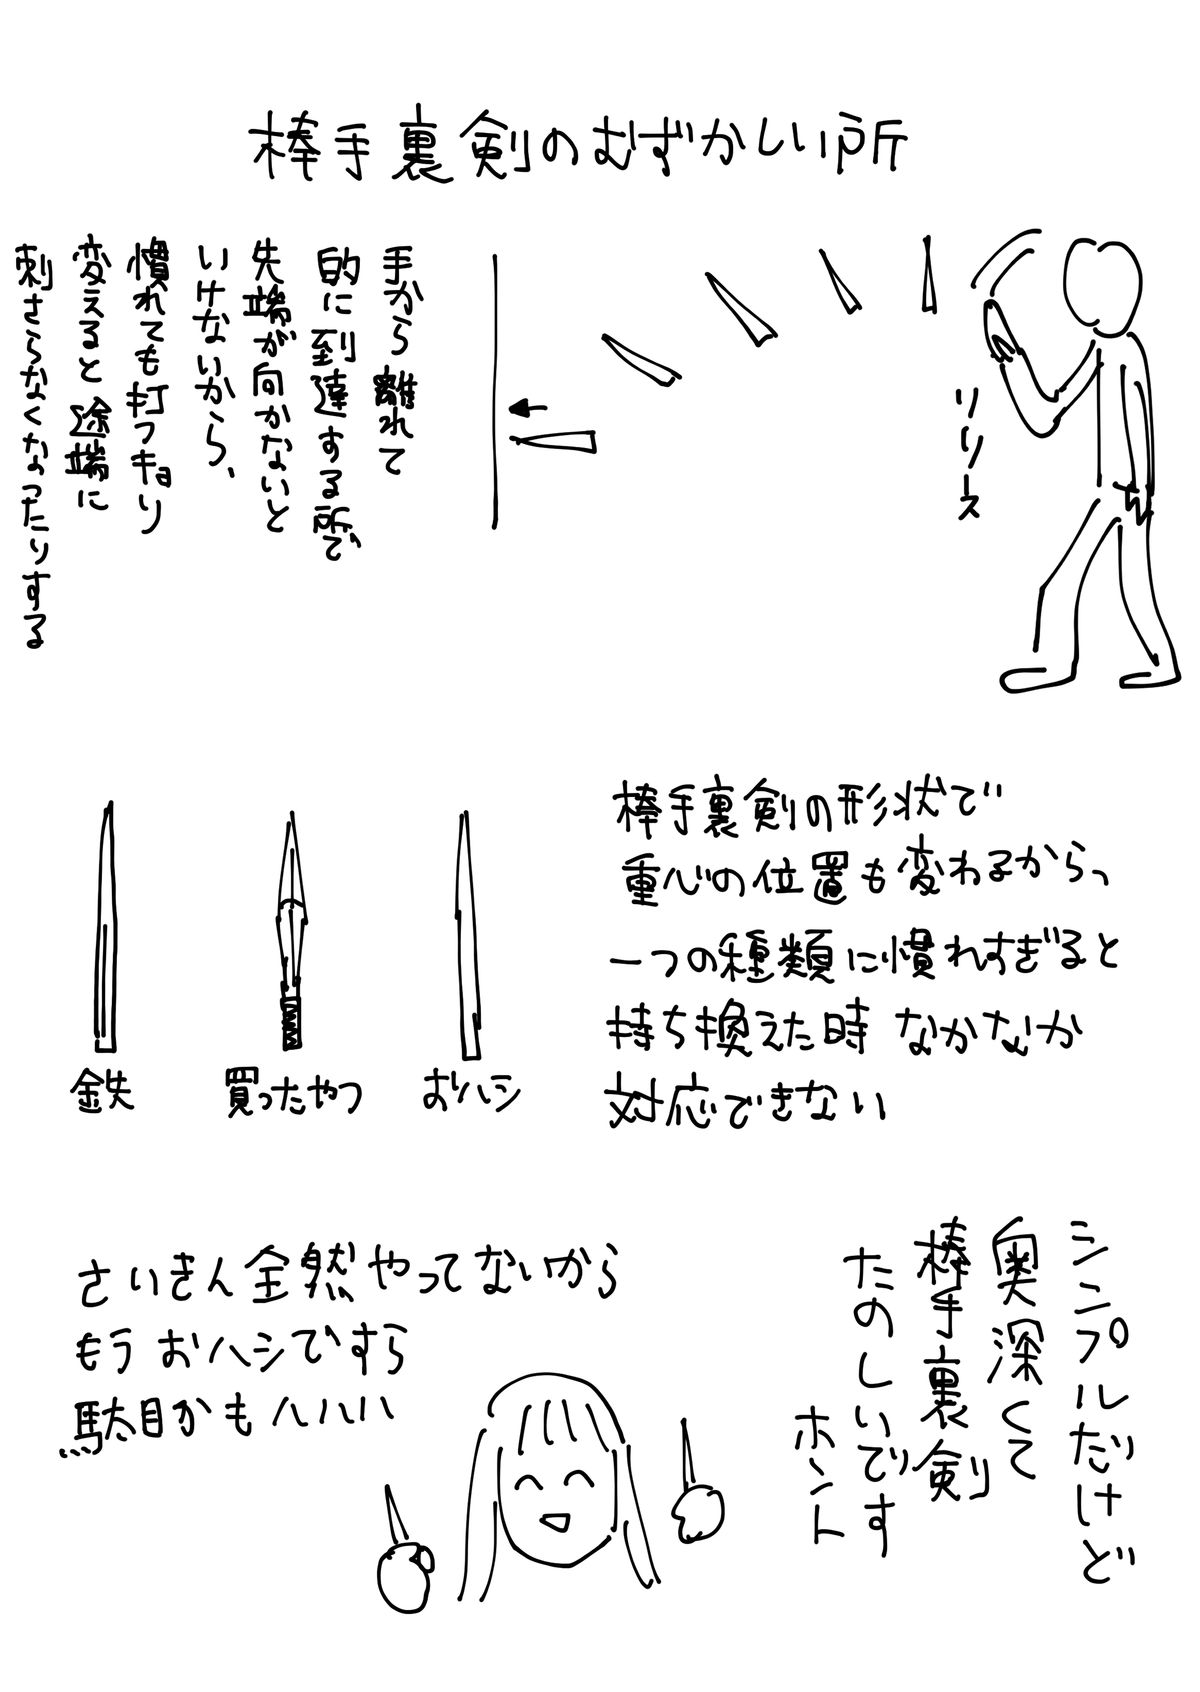 棒手裏剣のむずかしい所
リリース
手から離れて
的に到達する所で
先端が向かないと
いけないから、
慣れても打つキョリ
変えると途端に
刺さらなくなったりする
棒手裏剣の形状で
重心の位置も変わるから、
一つの種類に慣れすぎると
持ち換えた時なかなか
対応できない
鉄
買ったやつ
おハシ
シンプルだけど
奥深くて
棒手裏剣
たのしいです
ホント
さいきん全然やってないから
もうおハシですら
駄目かもハハハ